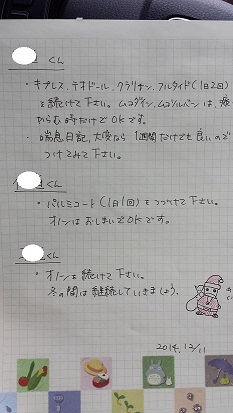 くん
・キプレス、テオドール、クラリチン、フルタイド(1日2回)
を続けて下さい。ムコダイン、ムコソルバンは、痰が
からむ時だけでOKです。
・喘息日記、大変なら1週間だけでも良いので
つけてみて下さい。
くん
・パルミコート(1日1回)をつづけて下さい。
オノンはおしまいでOKです。
くん
・オノンを続けて下さい。
冬の間は継続していきましょう。
2014.12/11